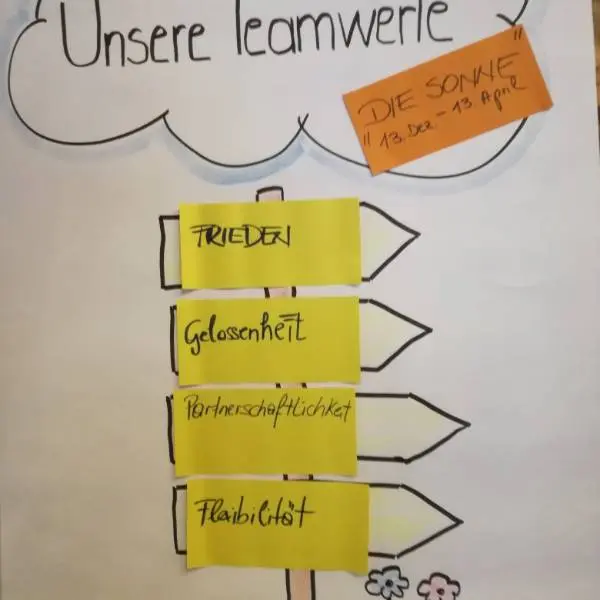 Unsere Teamwerte
"DIE SONNE"
13. Dez. - 13. April
FRIEDEN
Gelassenheit
Partnerschaftlichket
Flexibilität